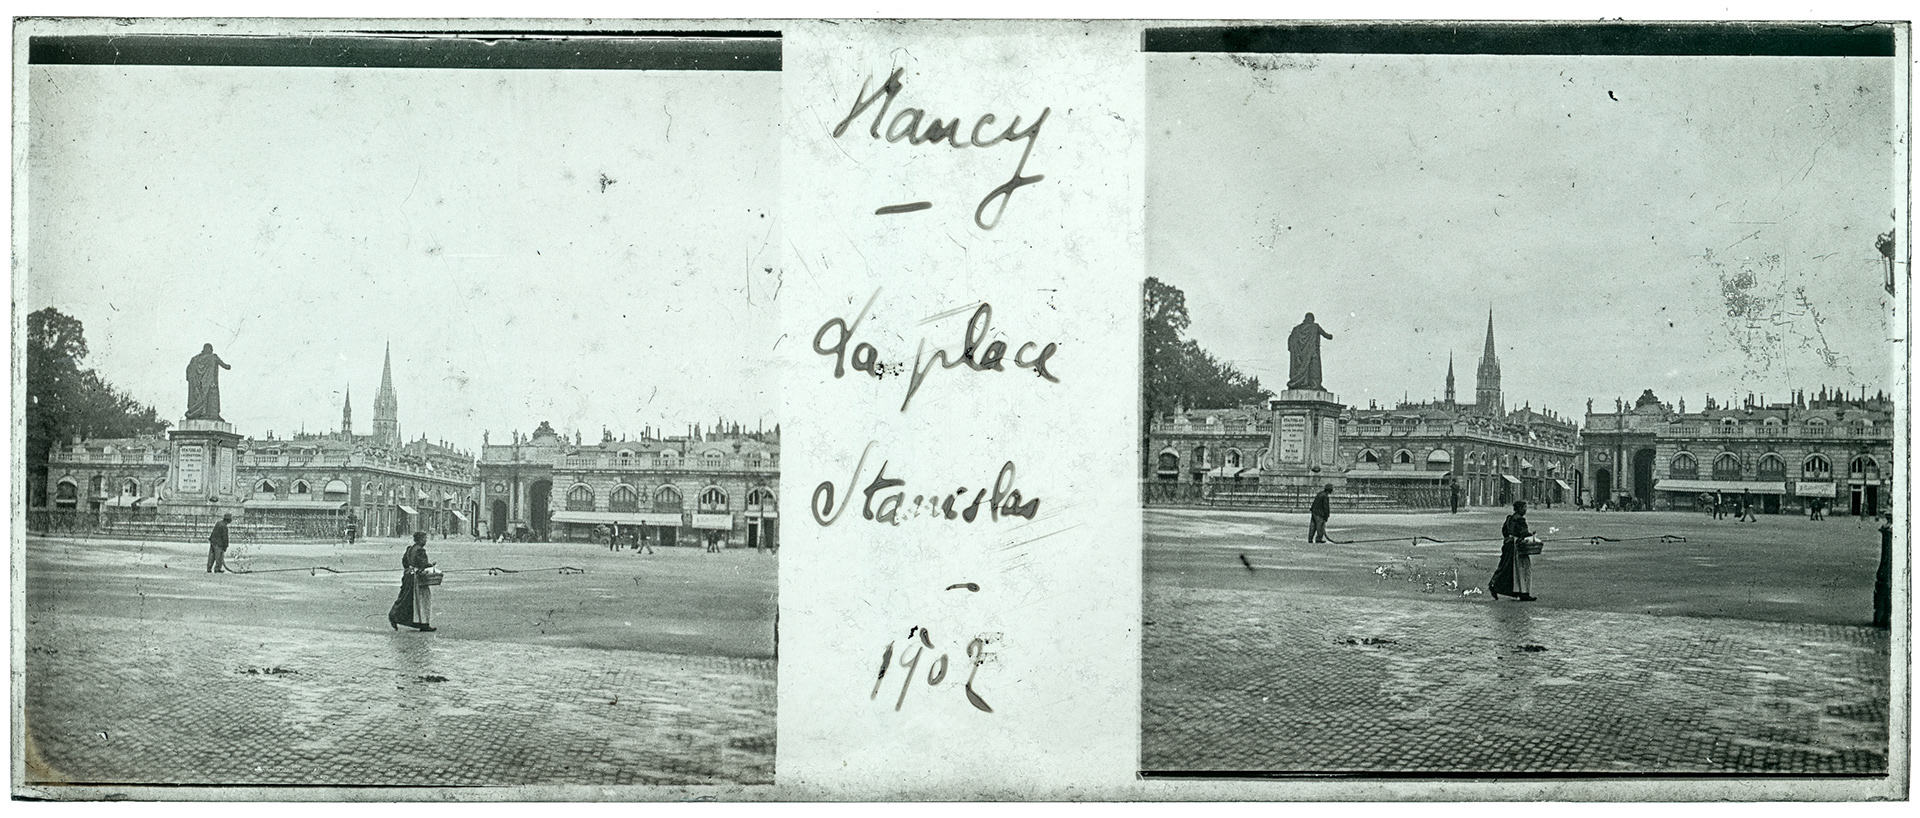 Nancy
—
La place
Stanislas
-
1902